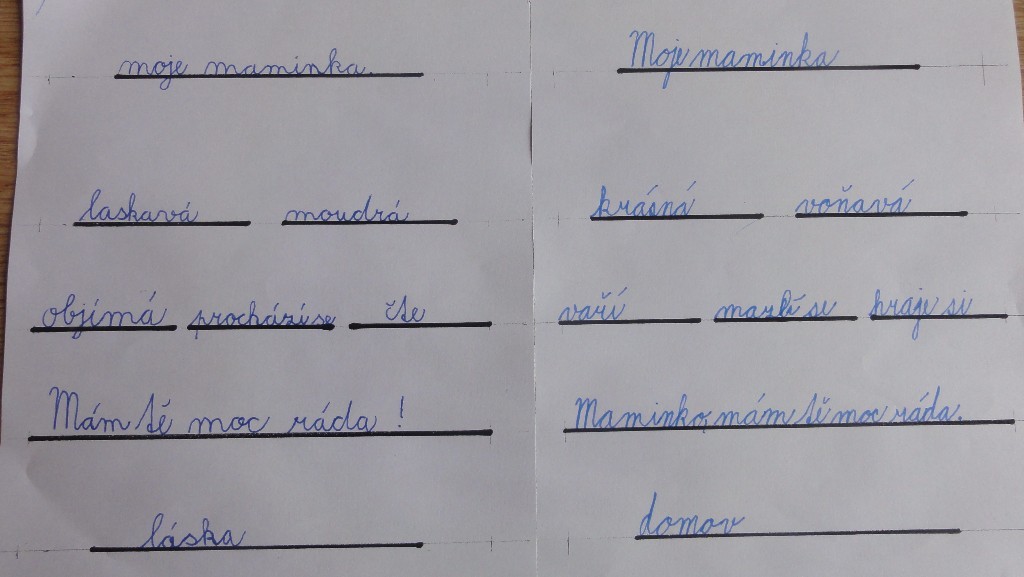 moje maminka
laskavá moudrá
objímá prochází se čte
Mám tě moc ráda!
láska
Moje maminka
krásná voňavá
vaří mazlí se hraje si
Maminko, mám tě moc ráda.
domov